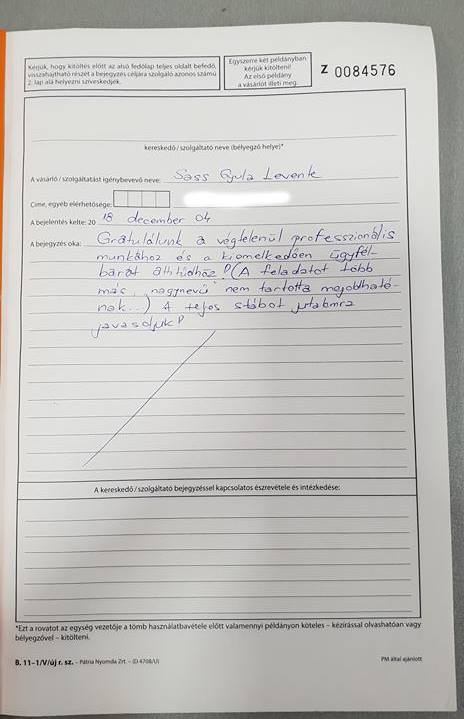 Kérjük, hogy kitöltés előtt az alsó fedőlap teljes oldalt befedő,
visszahajtható részét a bejegyzés céljára szolgáló azonos számú
2. lap alá helyezni szíveskedjék.
Egyszerre két példányban
kérjük kitölteni!
Az első példány
a vásárlót illeti meg.
Z 0084576
kereskedő / szolgáltató neve (bélyegző helye)*
A vásárló / szolgáltatást igénybevevő neve: Sass Gyula Levente
Címe, egyéb elérhetősége:
A bejelentés kelte: 20 18 december 04
A bejegyzés oka: Gratulálunk a végtelenül professzionális
munkához és a kiemelkedően ügyfél-
barát attitűdhöz! (A feladatot több
más, "nagynevű" nem tartotta megoldható-
nak...) A teljes stábot jutalmra
javasoljuk!
A kereskedő / szolgáltató bejegyzéssel kapcsolatos észrevétele és intézkedése:
*Ezt a rovatot az egység vezetője a tömb használatbavétele előtt valamennyi példányon köteles – kézírással olvashatóan vagy
bélyegzővel – kitölteni.
B. 11–1/V/új r. sz. – Pátria Nyomda Zrt. – (D 4708/U)
PM által ajánlott